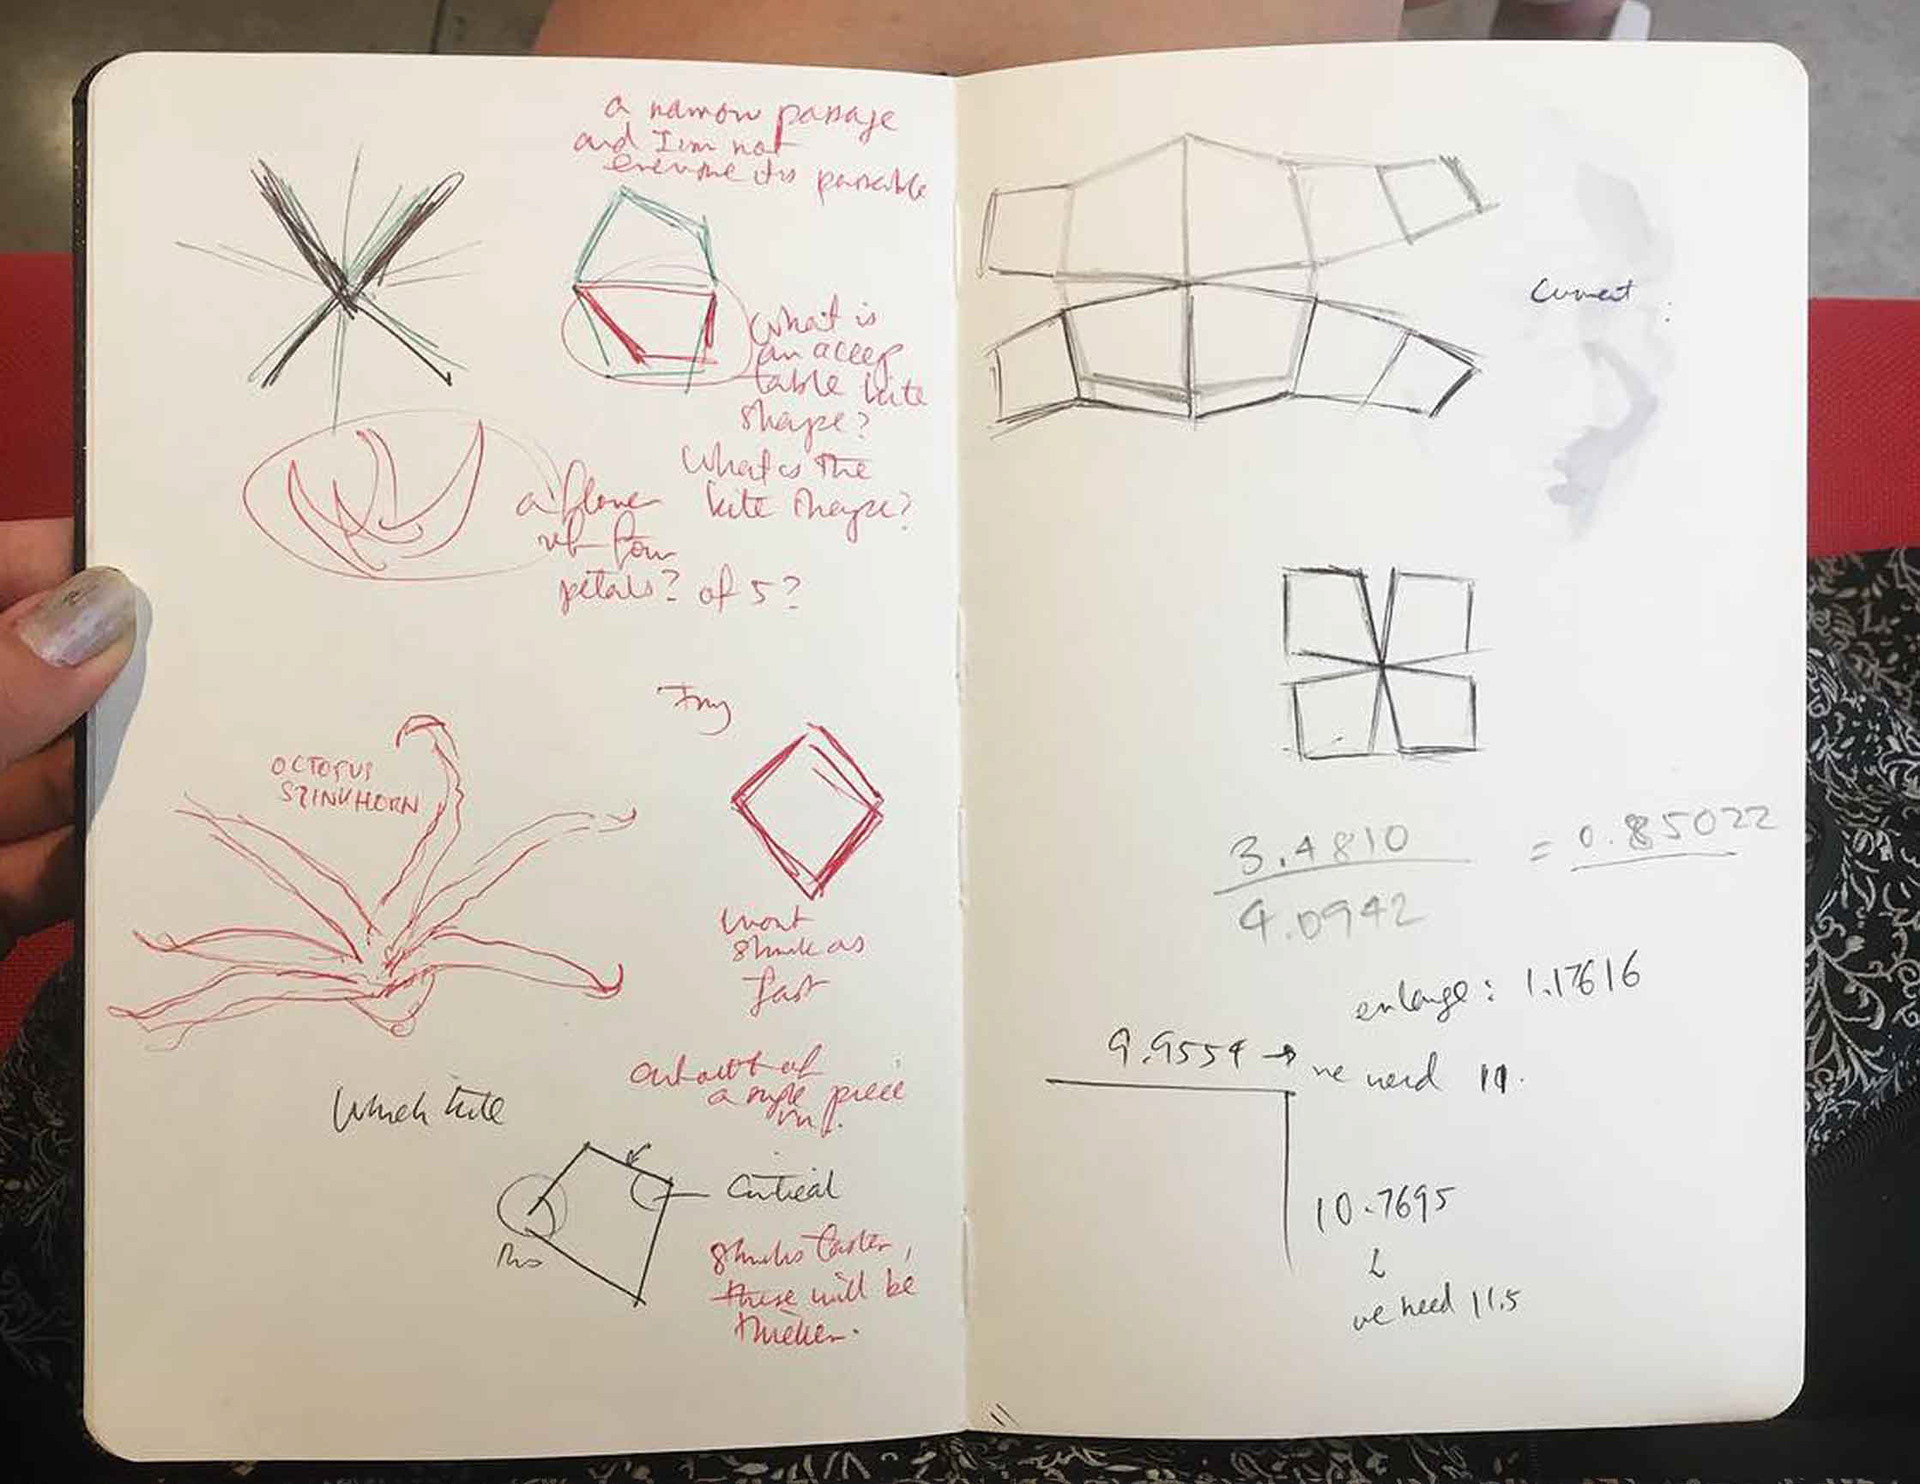 a narrow passage
and I'm not
even sure its passable
What is
an accep
table kite
shape?
What is the
kite shape?
a flower
of four
petals? of 5?
Try
OCTOPUS
STINKHORN
Wont
shrink as
fast
Cut out of
a single piece
Which kite
Critical
This
Shrinks faster,
these will be
thicker.
Current
3.4810
4.0942
= 0.85022
enlarge: 1.17616
9.9554 → we need 11.
10.7695
we need 11.5